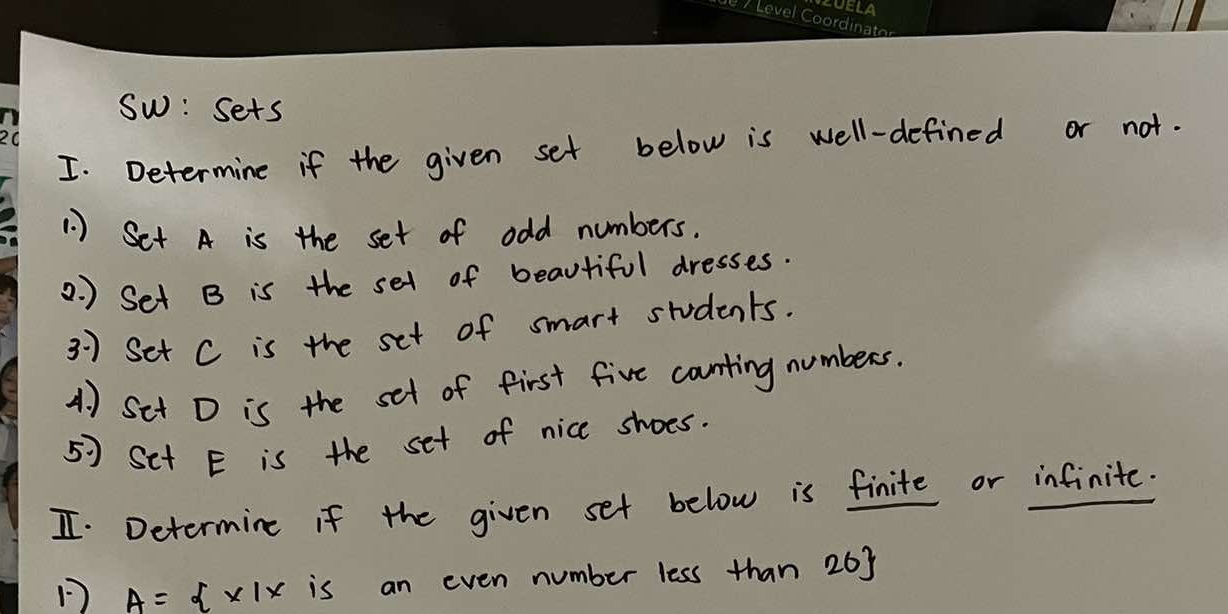 7 Level Coordinator
SW: Sets
I. Determine if the given set below is well-defined or not.
1.) Set A is the set of odd numbers.
2.) Set B is the set of beautiful dresses.
3.) Set C is the set of smart students.
4.) Set D is the set of first five counting numbers.
5.) Set E is the set of nice shoes.
II. Determine if the given set below is finite or infinite.
1.) A = {x|x is an even number less than 26}